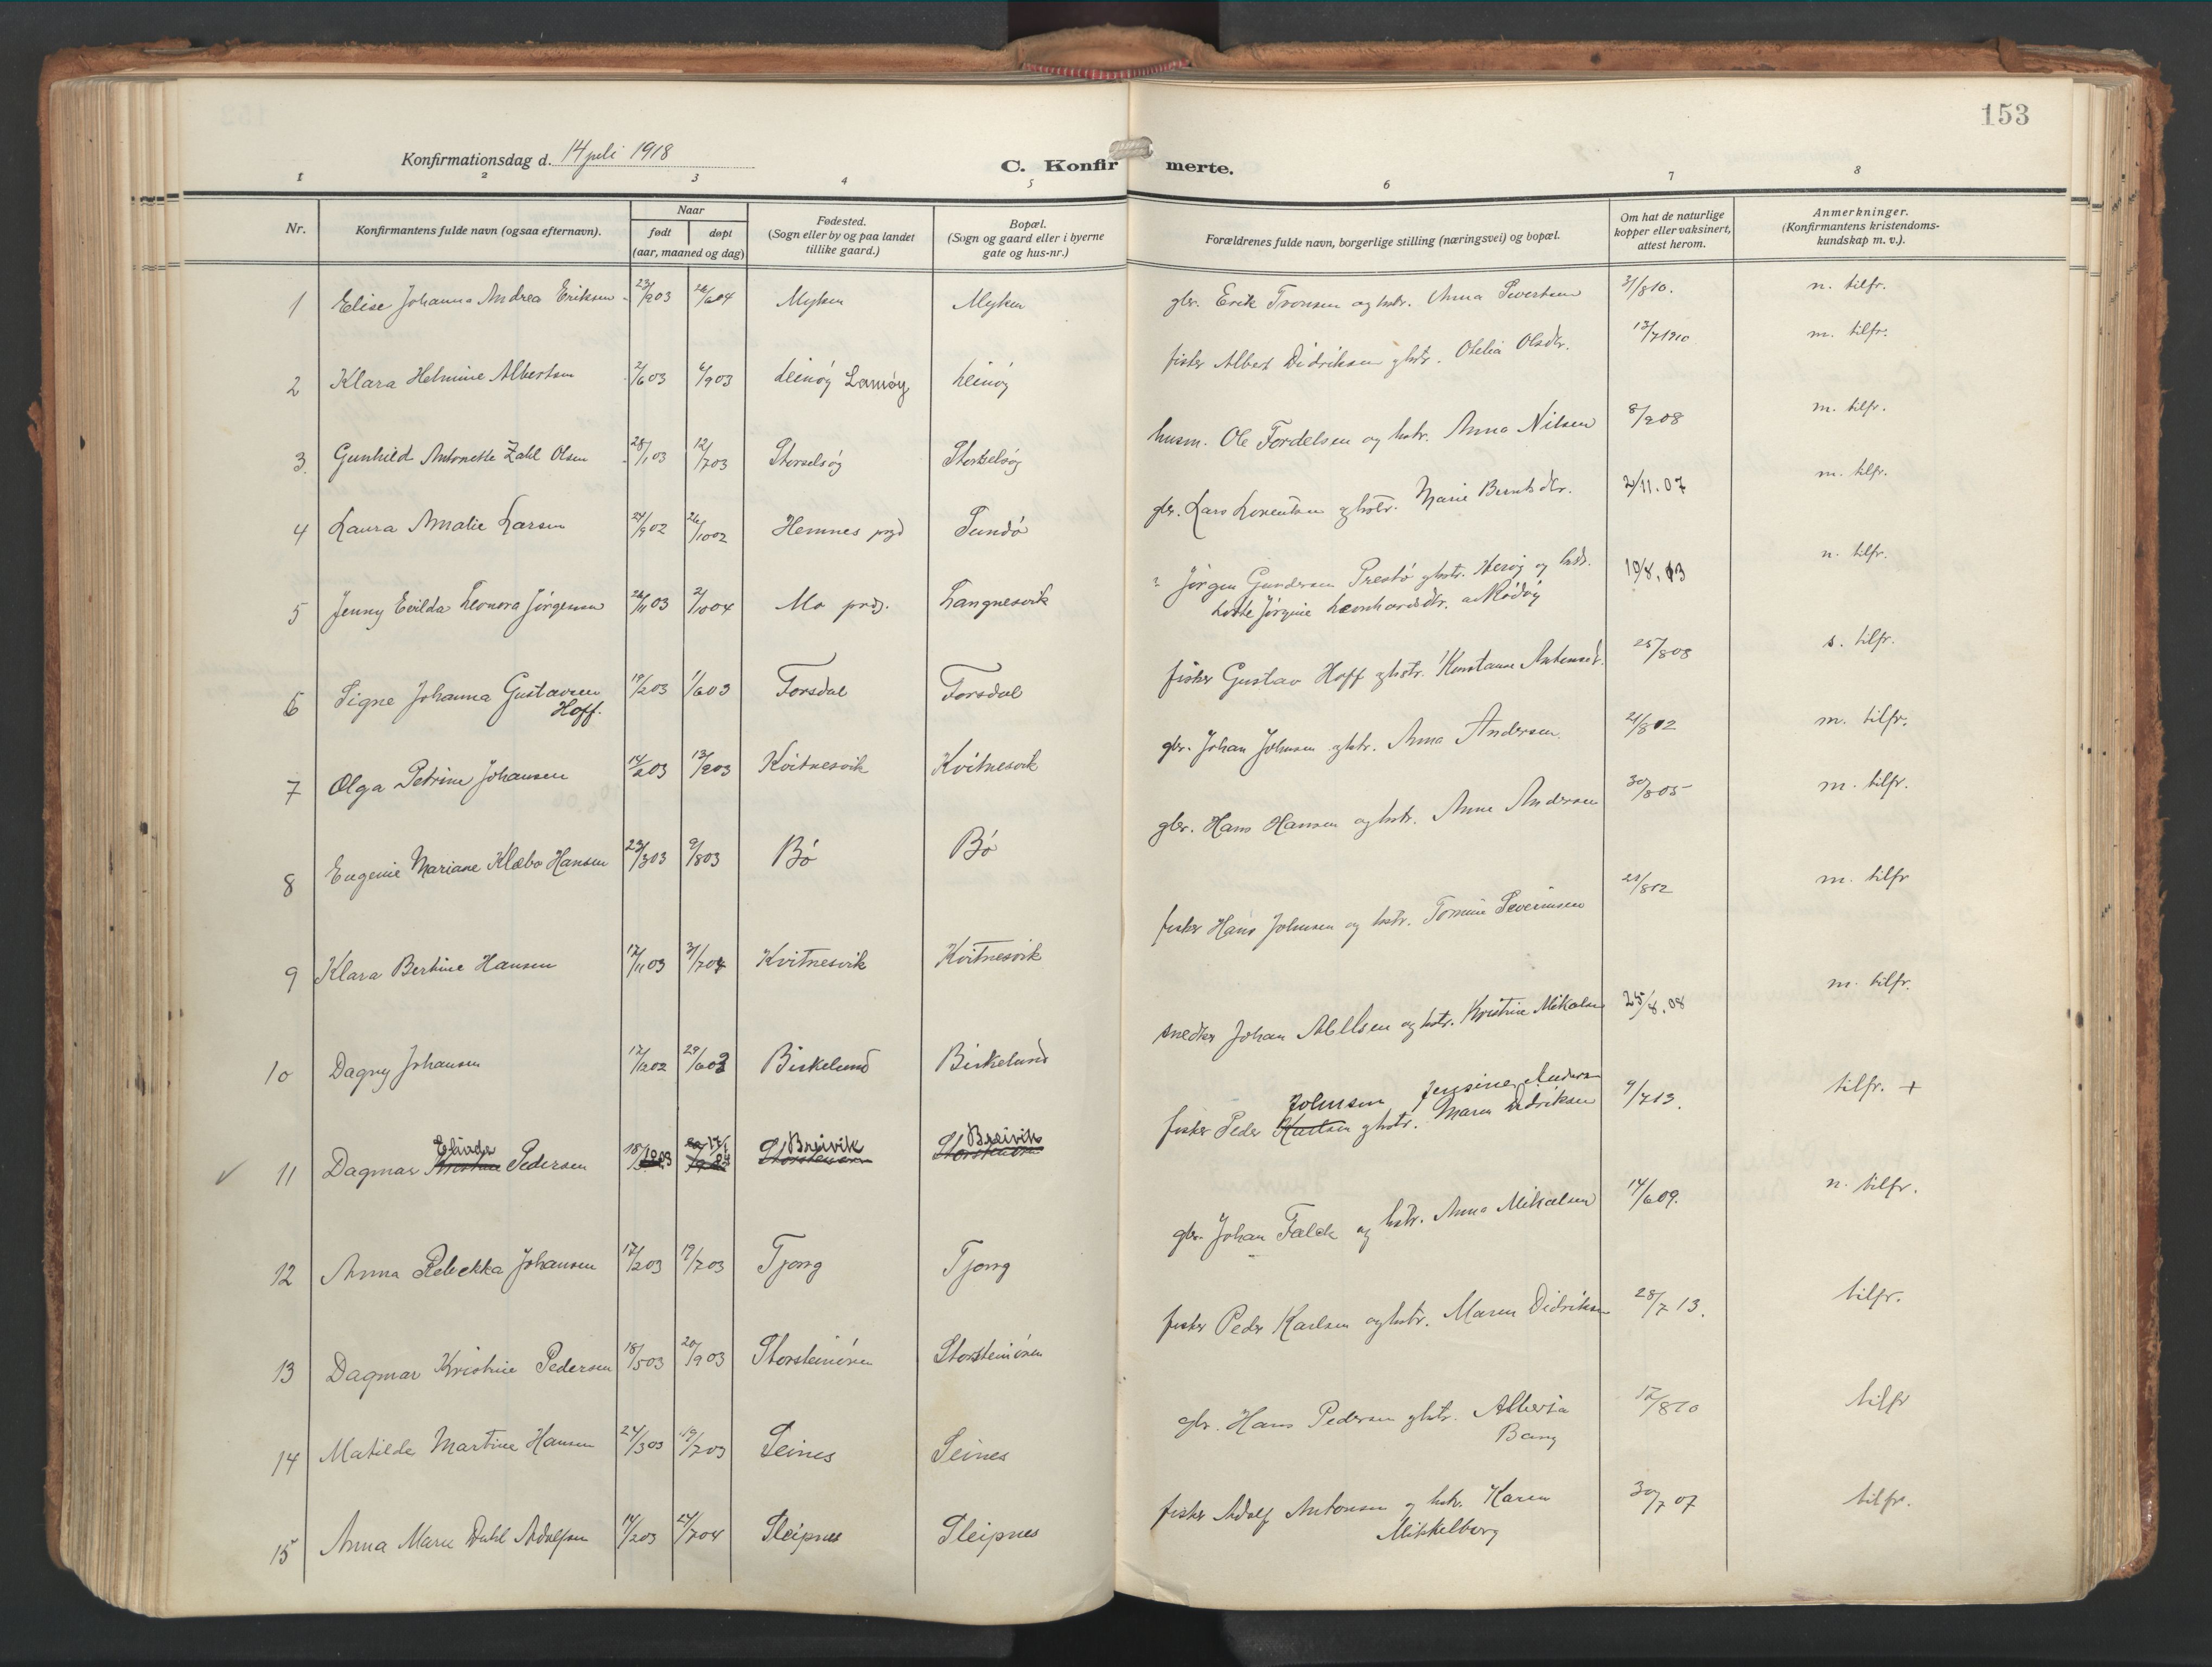 153
Konfirmationsdag d. 14 juli 1918
C. Konfirmerte.
1 2 3 4 5 6 7 8
Nr.
Konfirmantens fulde navn (ogsaa efternavn).
Naar
født døpt
(aar, maaned og dag)
Fødested.
(Sogn eller by og paa landet
tillike gaard.)
Bopæl.
(Sogn og gaard eller i byerne
gate og hus-nr.)
Forældrenes fulde navn, borgerlige stilling (næringsvei) og bopæl.
Om hat de naturlige
kopper eller vaksinert,
attest herom.
Anmerkninger.
(Konfirmantens kristendoms-
kundskap m. v.).
1 Elise Johanna Andrea Eriksen 23/2 03 26/6 04 Myken Myken gbr. Erik Tronsen og hstr. Anna Sivertsen 31/8 10. n. tilfr.
2 Klara Helmine Albertsen 2/6 03 6/9 03 Leinøy Lamøy Leinøy fisker Albert Didriksen og hstr. Otelia Olsdtr. 12/7 1910 m. tilfr.
3 Gunhild Antonette Zahl Olsen 28/1 03 12/7 03 Storselsøy Storselsøy husm. Ole Fordelsen og hstr. Anna Nilsen 8/9 08 m. tilfr.
4 Laura Amalie Larsen 24/9 02 26/10 02 Hemnes prgd Sundø gbr. Lars Lorentsen og hstr. Marie Berntsdtr. 2/11. 07 m. tilfr.
5 Jenny Evilda Leonora Jørgensen 26/11 03 2/10 04 Mo prgj. Langnesvik Jørgen Gundersen Prestø og hstr. 19/8. 13 n. tilfr.
Lotte Jørgine Leonhardsdtr. a Rødøy
6 Signe Johanna Gustavsen 19/2 03 1/6 03 Forsdal Forsdal fisker Gustav Hoff og hstr. Konstanse Antonsdtr. 25/8 08 s. tilfr.
Hoff.
7 Olga Petrine Johansen 14/2 03 13/7 03 Kvitnesvik Kvitnesvik gbr. Johan Johnsen og hstr. Anna Andersen. 21/8 12 m. tilfr.
8 Eugenie Mariane Klæbo Hansen 23/3 03 9/8 03 Bø Bø gbr. Hans Hansen og hstr. Anne Andersen 30/8 05 m. tilfr.
9 Klara Bertine Hansen 17/11 03 31/7 04 Kvitnesvik Kvitnesvik fisker Hans Johnsen og hstr. Tomine Severinsen 21/8 12 m. tilfr
10 Dagny Johansen 17/12 02 29/6 03 Birkelund Birkelund snedker Johan Abelsen og hstr. Kristine Mikalsen 25/8. 08 m. tilfr.
Johnsen Jensine Anders
11 Dagmar Kristine Pedersen 18/ Storsteinøren Breivik Storsteinøren Breivik fisker Peder Karlsen og hstr. Maren Didriksen 9/7 13. tilfr. +
12 Anna Rebekka Johansen 17/2 03 19/7 03 Tjong Tjong gbr. Johan Falch og hstr. Anna Mikalsen 14/6 09. n. tilfr.
13 Dagmar Kristine Pedersen 18/5 03 20/9 03 Storsteinøren Storsteinøren fisker Peder Karlsen og hstr. Maren Didriksen 28/7 13. tilfr.
14 Matilde Martine Hansen 24/3 03 19/7 03 Seines Seines gbr. Hans Pedersen og hstr. Alberta 17/8 10 tilfr
Bang
15 Anna Marie Dahl Adolfsen 14/2 03 24/7 04 Sleipnes Sleipnes fisker Adolf Antonsen og hstr. Karen 30/7 07 tilfr.
Mikkelborg